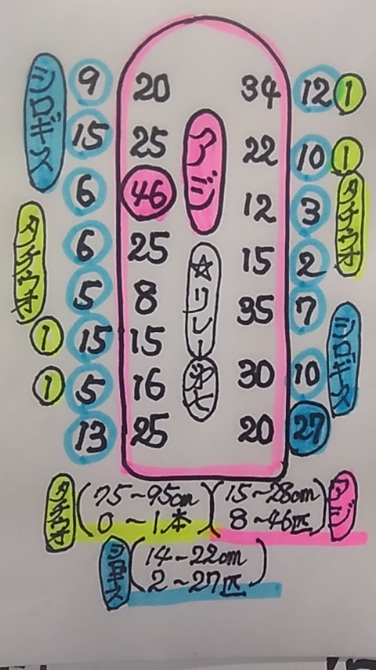 シロギス
タチウオ
9 20 34 12 1
15 25 22 10 1
6 46 12 3
6 25 15 2
5 8 35 7
1 15 15
1 5 16 30 10
13 25 20 27
アジ
☆リレー
タチウオ
シロギス
タチウオ (75~95cm 0~1本)
(15~28cm 8~46匹) アジ
シロギス (14~22cm 2~27匹)